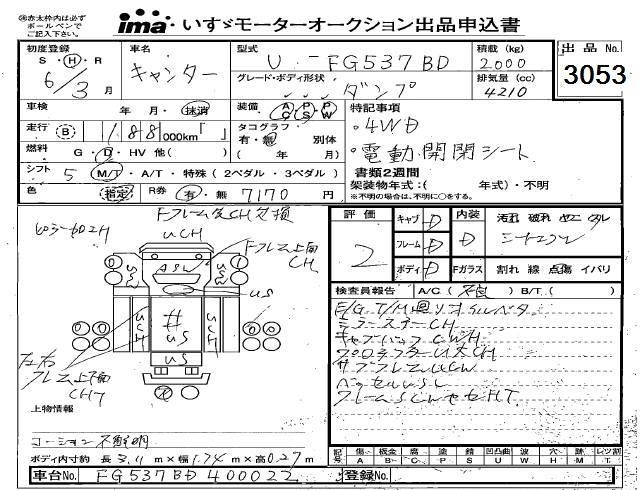 ㊟赤太枠内は必ず
ボールペンで
ご記入下さい。
ima いすゞモーターオークション出品申込書
出品No.
3053
初度登録
S・H・R
6/3月
車名
キャンター
型式
U - FG537BD
グレード・ボディ形状
ダンプ
積載(kg)
2000
排気量(cc)
4210
車検 年・月・抹消
装備 A/C P/S P/W
特記事項
・4WD
・電動開閉シート
走行 (B) 188000km「 」
タコグラフ
有・無 別体
( 年 月)
燃料 G・D・HV 他( )
書類2週間
シフト 5 M/T・A/T・特殊(2ペダル・3ペダル)
架装物年式:( 年式)・不明
※不明の場合は、不明に○をする。
色 指定 R券 有・無 7170円
Fフレーム左CH交換
UCH
Fフレム上面
CH
ASW
US
UCH
#
UCH
US
左右
フレム上面
CH
評価
2
キャブ D
フレーム D
ボディ D
内装
D
Fガラス
汚れ 破れ
割れ 線 点傷 イバリ
検査員報告 A/C(不良) B/T( )
E/G T/M廻リオイルベタ
ミラーステーCH
キャブバックCWH
サブフレムUCW
ベッセルUSW
上物情報
コーション不鮮明
ボディ内寸約 長3.11m×幅1.74m×高0.27m
記号 傷A 板金B 腐C 塗P 錆S 凹凸曲U 波W 穴H 跡M レツ割T
車台No. FG537BD 400022
登録No.